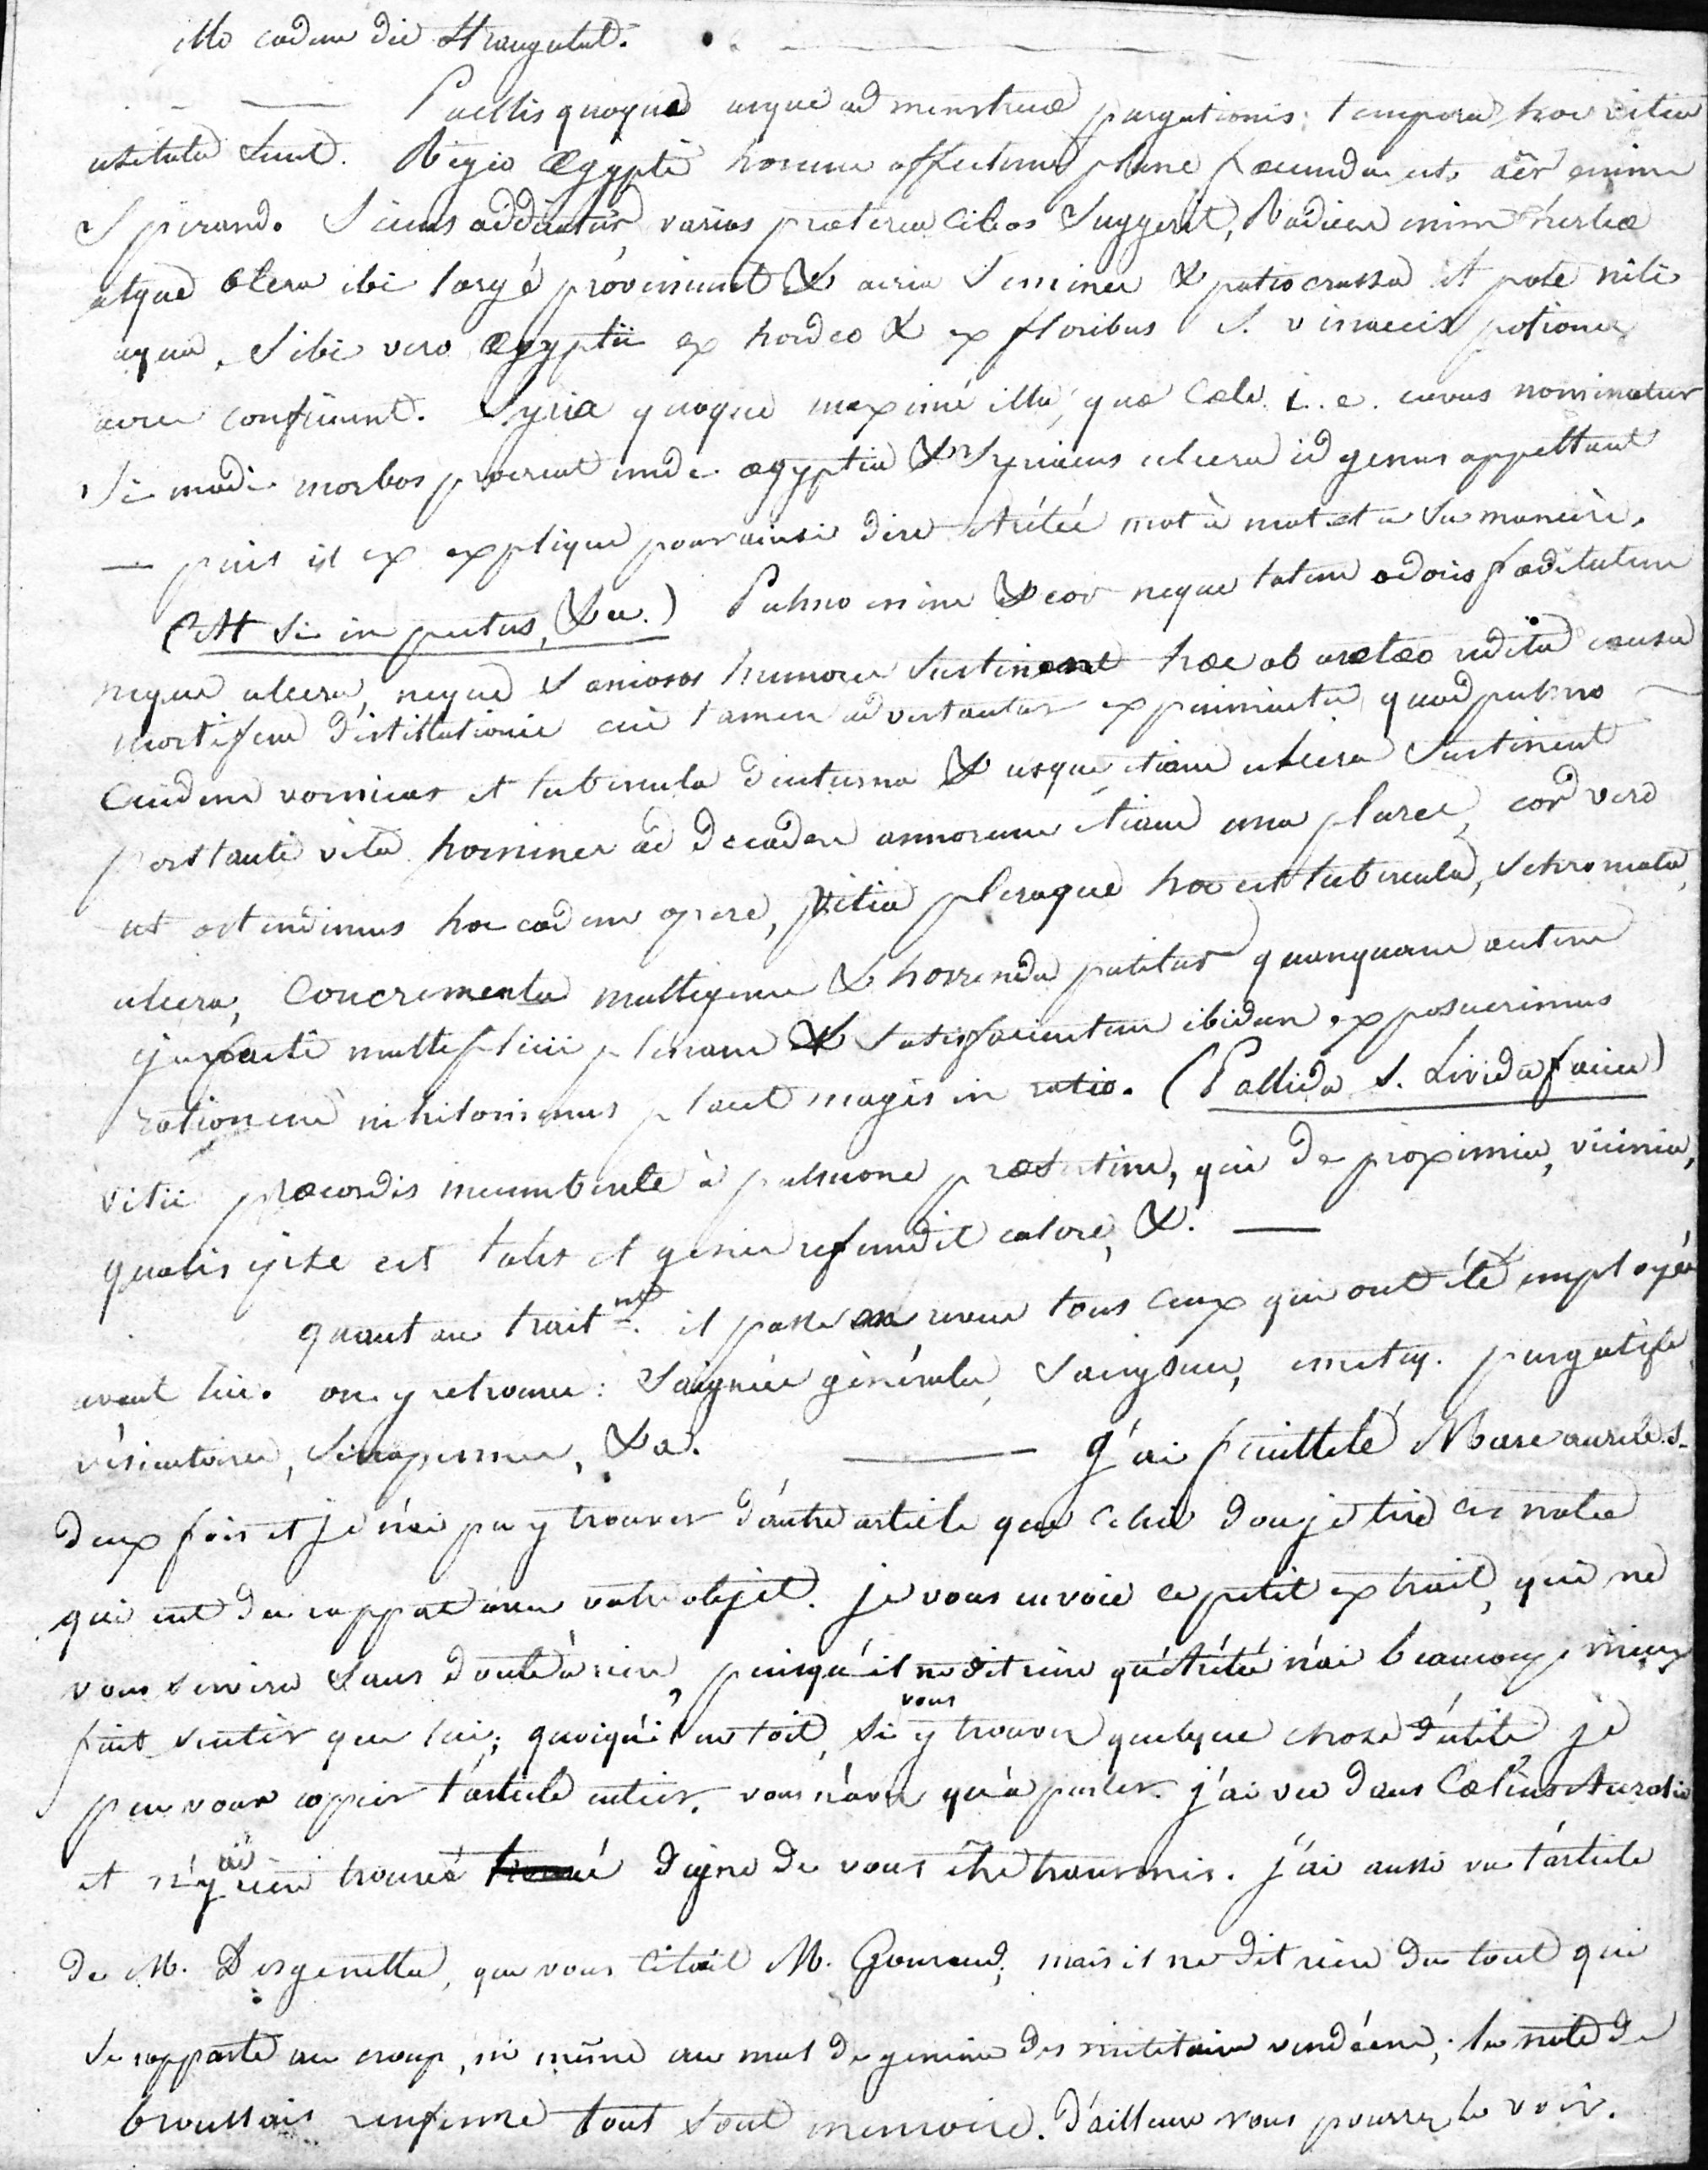 illo eadem die strangulat.
Puellis quoque usque ad menstruæ purgationis tempora hoc vitia
usitata sunt. Regio Ægypti horum affectuum plane fœcunda est, aër enim
spirand. siccus adducitur, varios præterea cibos suggerit, Radices enim herbæ
atque olera ibi largé proveniunt & acria semina & potio crassa ut pote nili
aqua, sibi vero ægyptii ex hordeo & ex floribus s. vinaceis potiones
acres conficiunt. Syria quoque maximé illa, quæ Cæle i. e. cavus nominatur
si modi morbos procreat unde ægyptia & Syriacus ulcera id genus appellant
— puis il ex explique pour ainsi dire Arétée mot à mot et a sa manière.
(At si in pectus, &a.) Pulmo enim & cor neque talem odoris fœditatem
neque ulcera, neque saniosos humores sustinent hæc ab aretæo reddita causa
mortiferæ distillationis cui tamen adversantur experimenta, quod pulmo
quidem vomicas et tubercula diuturna & usque etiam ulcera sustineat
perstante vita homines ad decadem annorum etiam una plures, cor vero
ut ostendimus hoc eodem opere, vitia pleraque hoc est tubercula, schromata,
ulcera, Concrementa multigena & horrenda patitur quanquam autem
ejus facti multeplicii plenam & satisfacientem ibidem exposuerimus
rationem nihilominus placet magis in ratio. (Pallida s. Livida facies)
vitii præcordis incumbente à pulmone præsertim, qui de proximia, vicinia,
qualis ipse est talis et genis refundit calore, &. —
quant au traitnt. il passe en revue tous ceux qui ont été employés
avant lui. on y retrouve: Saignée générale, sangsue, emetiq. purgatifs
vésicatoires, sinapismes, &a. — j'ai feuilleté Marc aurele S.
deux fois et je n'ai pu y trouver d'autre article que celui dou je tire ces notes
qui eut du rapport avec votre objet. je vous envoie ce petit extrait, qui ne
vous servira sans doute à rien, puisqu'il ne dit rien qu'Arétée n'ai beaucoup mieux
fait sentir que lui; quoiqu'il en soit, si vous y trouvez quelque chose d'utile je
peu vous copier l'article entier. vous n'avez qu'a parler. j'ai vu dans Cœlius Aurelia
et n'y ai rien trouvé digne de vous être transmis. j'ai aussi vu l'article
de M. Desgenettes, que vous citait M. Gouraud; mais il ne dit rien du tout qui
se rapporte au croup, ni même au mal de gencive des militaires vendéens; la note de
broussais renferme tout sont memoire. D'ailleurs vous pourrez le voir.